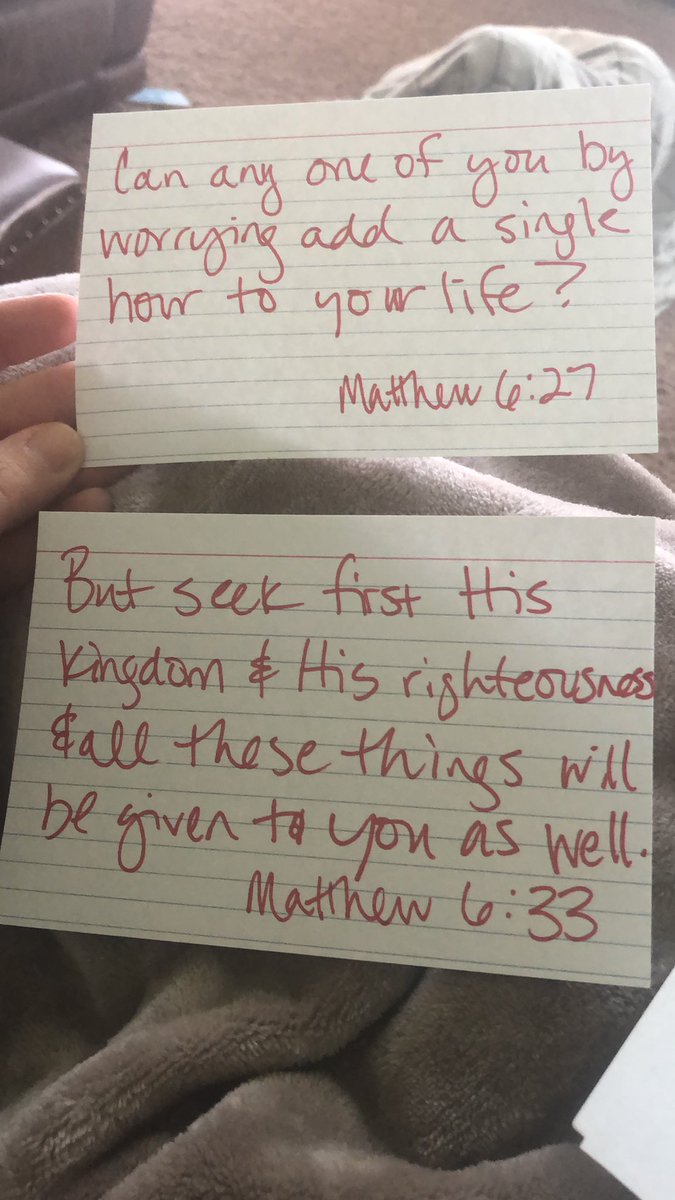 Can any one of you by
worrying add a single
hour to your life?
Matthew 6:27
But seek first His
Kingdom & His righteousness
& all these things will
be given to you as well.
Matthew 6:33